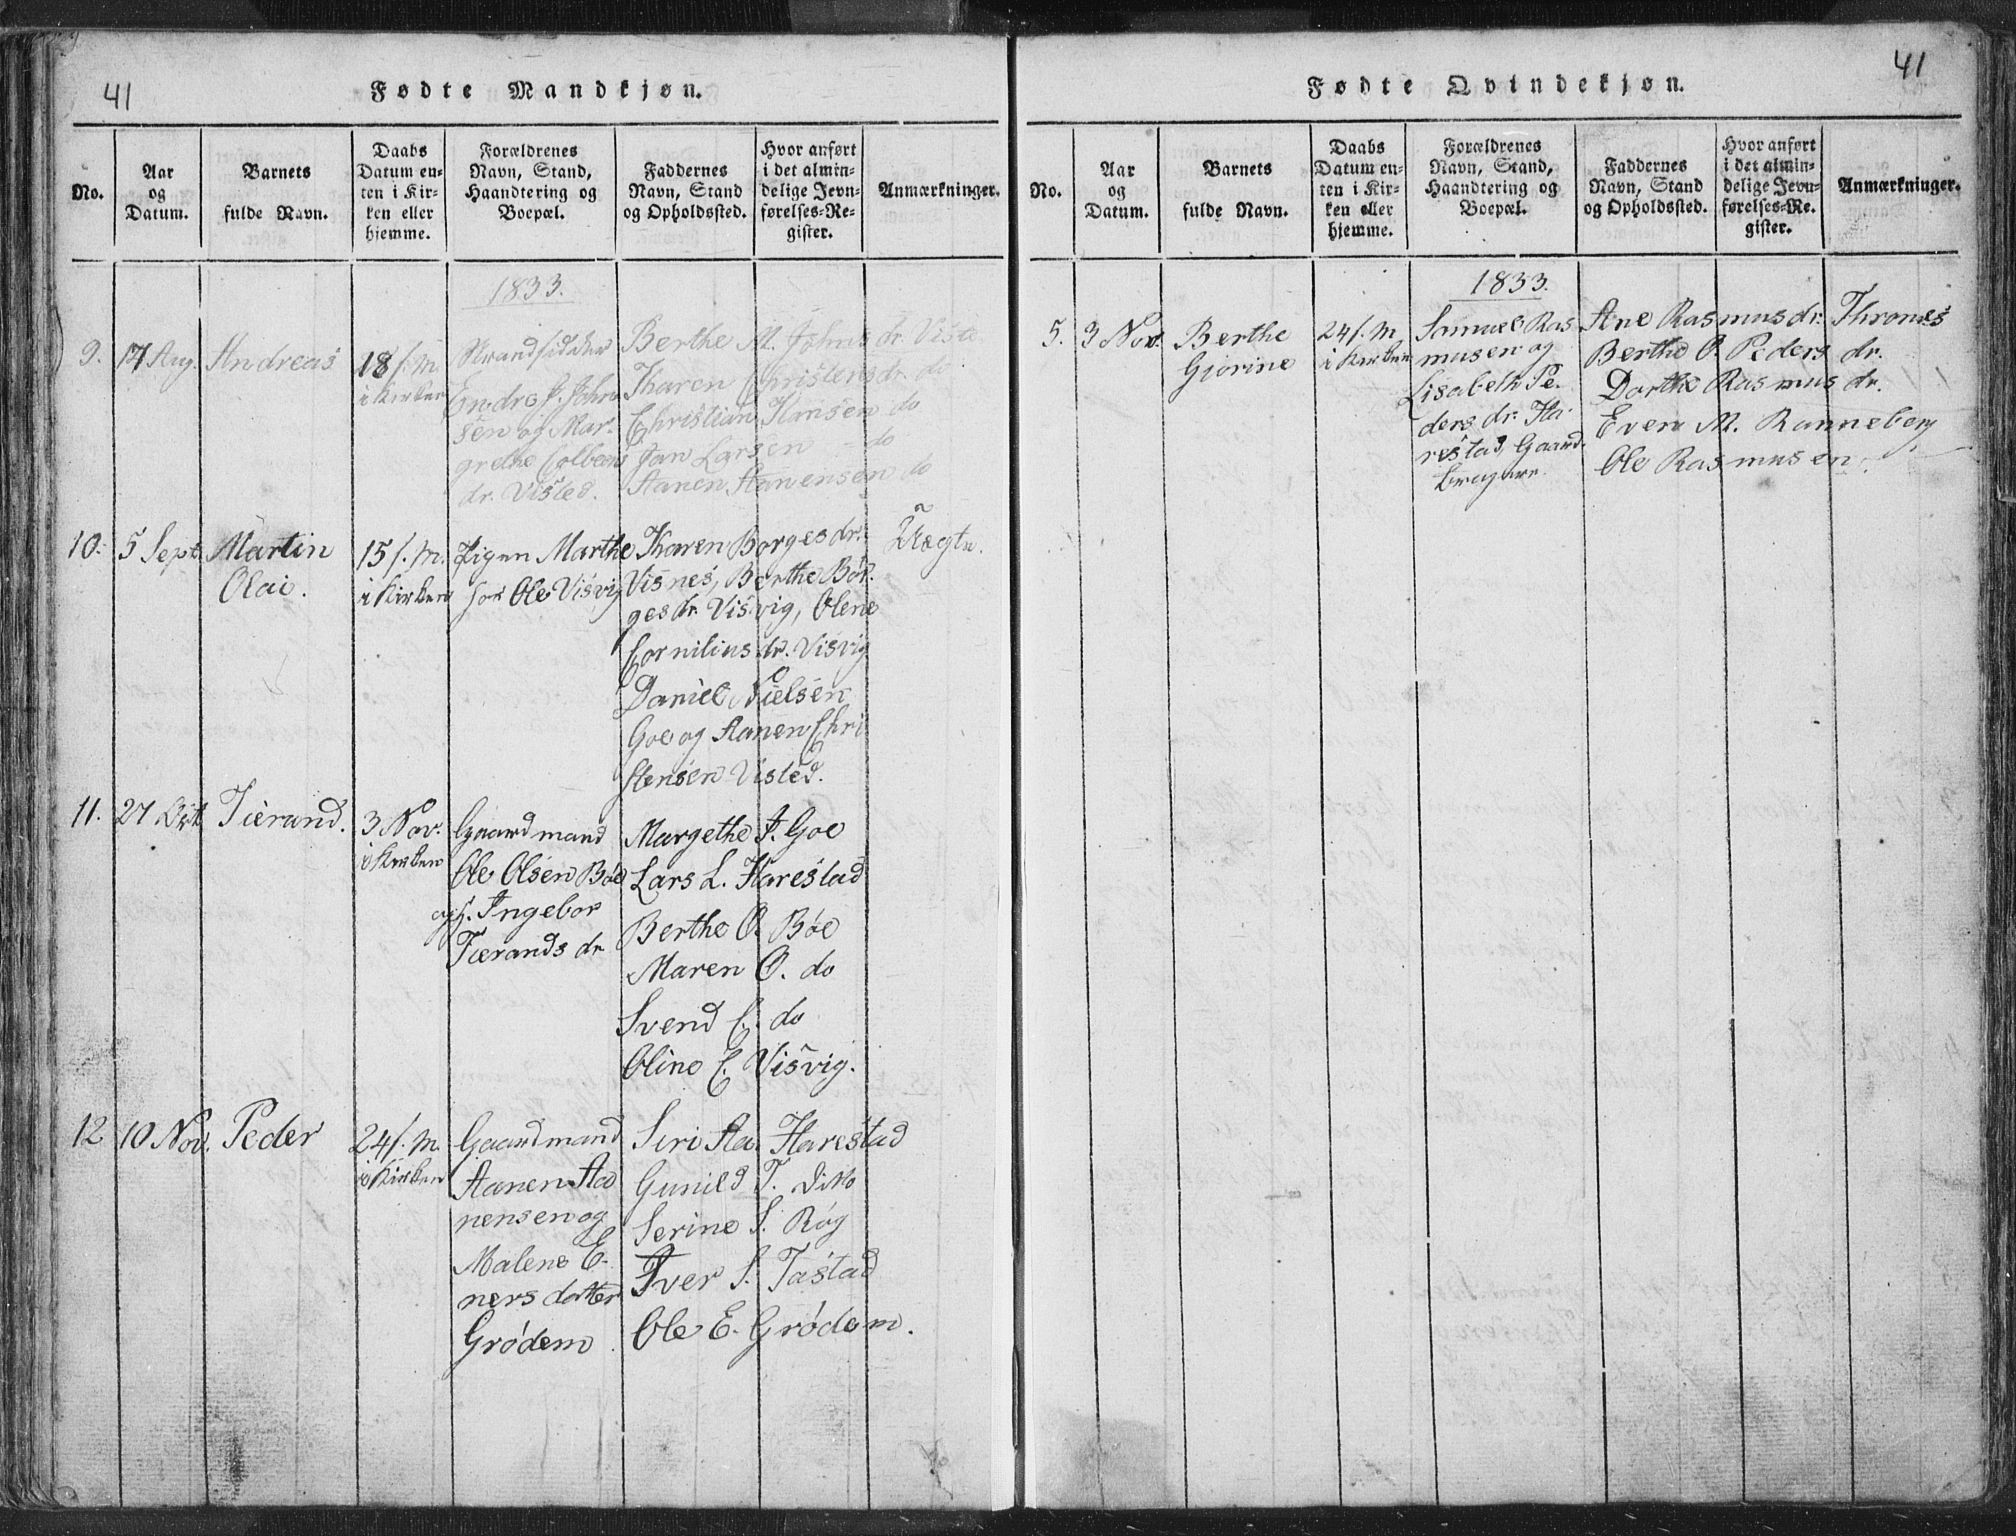 41
Fødte Mandkjøn.
No.
Aar
og
Datum.
Barnets
fulde Navn.
Daabs
Datum en-
ten i Kir-
ken eller
hjemme.
Forældrenes
Navn, Stand,
Haandtering og
Boepæl.
Faddernes
Navn, Stand
og Opholdssted.
Hvor anført
i det almin-
delige Jevn-
førelses-Re-
gister.
Anmærkninger.
1833.
9.
17 Aug.
Andreas
18 f. m.
i Kirken
Strandsidder
Endre J. Johns
sen og Mar-
grethe Colbeens
dr. Visted.
Berthe M. Johns dr. Viste
Karen Christens dr. do
Christian Hansen do
Jan Larsen - do
Aanen Aanensen do
10.
5 Sept.
Martin
Olai.
15 f. m.
i Kirken
Pigen Marthe
hos Ole Visvig
Karen Borgesdr.
Visnes, Berthe Bør-
ges dr. Visvig, Olene
Cornilius dr. Visvig
Daniel Nielsen
Goe og Aanen Chri
stensen Visted.
Uægte.
11.
27 Oct
Tierand.
3 Nov.
i Kirken
Gaardmand
Ole Olsen Bøe
og h. Ingebor
Tierands dr
Margethe J. Goe
Lars L. Harestad
Berthe O. Bøe
Maren O. do
Svend C. do
Oline C. Visvig.
12
10 Nov.
Peder
24 f. m.
i Kirken
Gaardmand
Aanen Aa
nensen og
Malene E-
ners datter
Grødem
Siri Aa. Harestad
Gunild T. Ditto
Serine S. Røg
Iver S. Tastad
Ole E. Grødem.
41
Fødte Qvindekjøn.
No.
Aar
og
Datum.
Barnets
fulde Navn.
Daabs
Datum en-
ten i Kir-
ken eller
hjemme.
Forældrenes
Navn, Stand,
Haandtering og
Boepæl.
Faddernes
Navn, Stand
og Opholdssted.
Hvor anført
i det almin-
delige Jevn-
førelses-Re-
gister.
Anmærkninger.
1833.
5.
3 Nov.
Berthe
Giorine
24 f. m
i Kirken
Samuel Ras
musen og
Lisabeth Pe-
ders dr. Ha-
restad, Gaard-
brugere.
Ane Rasmusdr. Thrones
Berthe O. Peders dr.
Dorthe Rasmus dr.
Even M. Ranneberg
Ole Rasmusen